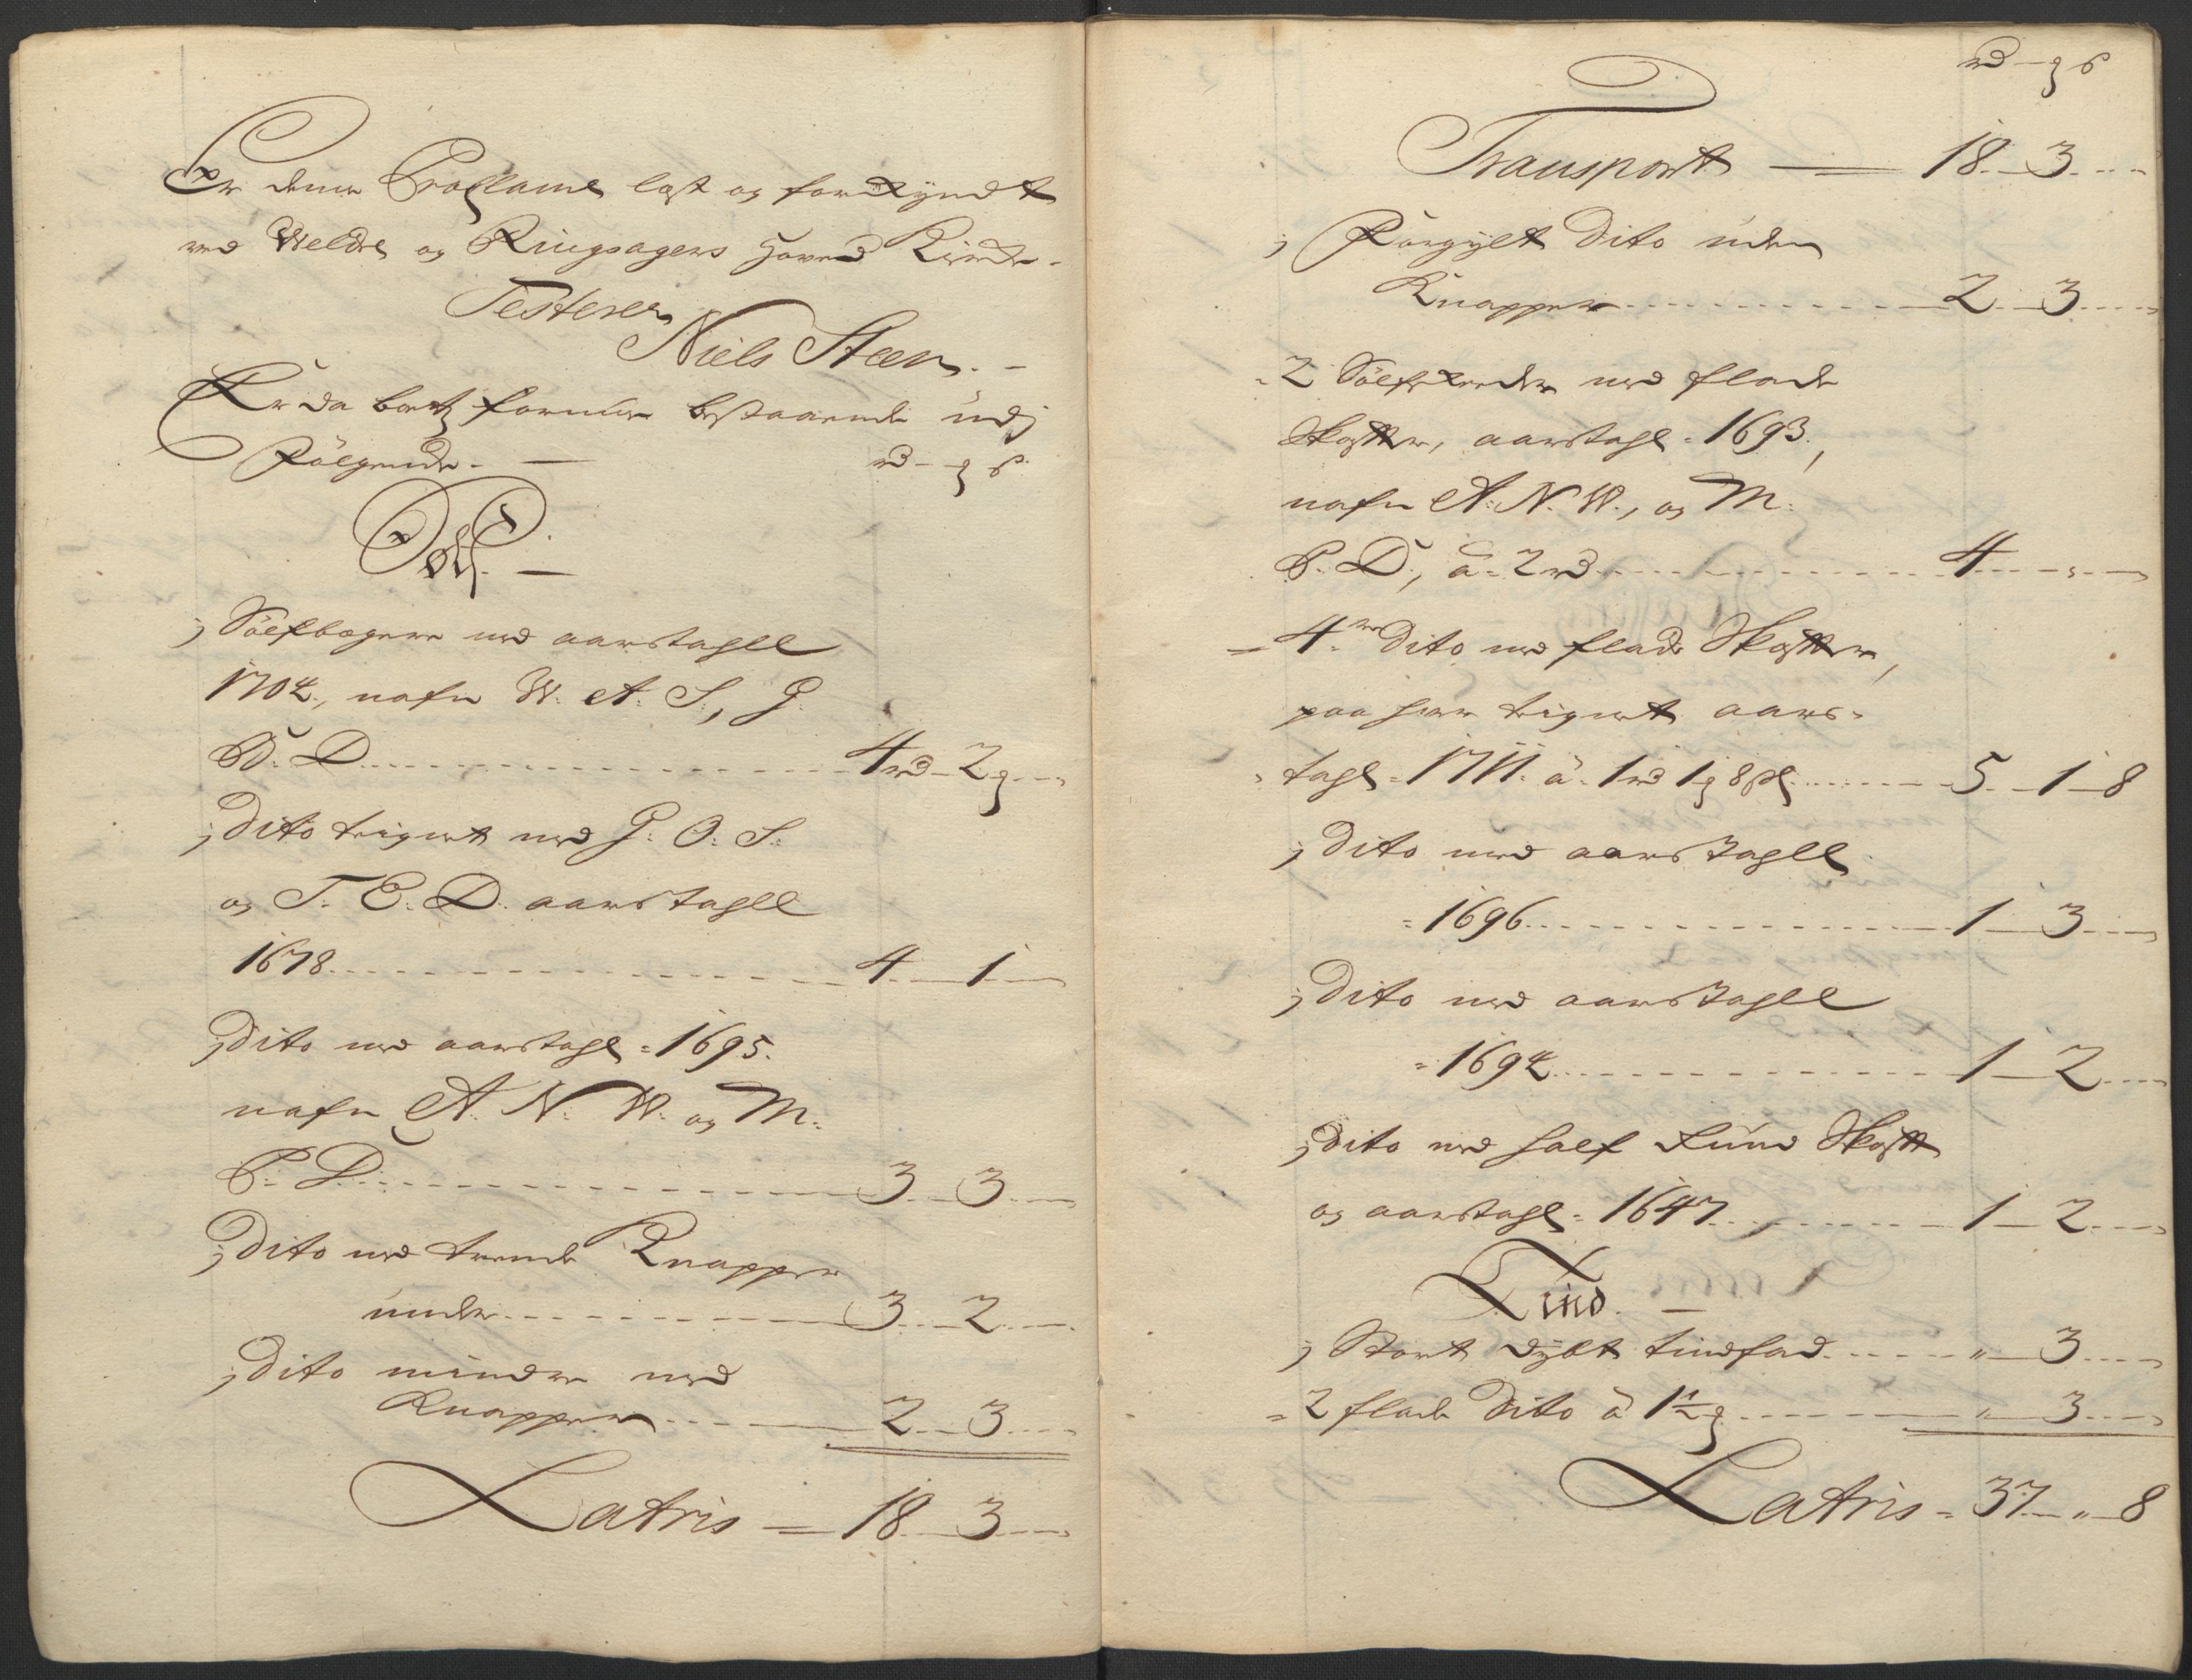 Er denne Proclame lest og forkyndt
ved Weldre og Ringsagers Hoved Kircke.
Testerer
Niels Steen.
Er da boets formue bestaaende udj
Følgende. rd - ʒ ß
Sölf.
j Sölfbægere med aarstahll
1704., nafn W. A. S., G.
B. D. 4 rd - 2 ʒ
j Dito tegnet med G. O. S.
og T. E. D. aarstahll
1678. 4 - 1
j Dito med aarstahl 1695.
nafn A. N. W. og M.
P. D. 3 - 3
j Dito med trende Knapper
under 3 - 2
j Dito mindre med
Knapper 2 - 3
Latris = 18 - 3
rd - ʒ ß
Transport 18 - 3
j Forgylt Dito uden
Knapper 2 - 3
2 Sölfskeeder med flade
Skafter, aarstahl 1693.,
nafn A. N. W., og M.
P. D., à 2 rd 4
4re Dito med flade Skafter,
paa hver tegnet aars-
tahl 1711. à 1 rd 1 ʒ 8 ß 5 - 1 - 8
j Dito med aarstahll
1696. 1 - 3
j Dito med aarstahll
1694. 1 - 2
j Dito med half rund Skaft
og aarstahl 1647. 1 - 2
Tind.
j Stort dybt tindfad " - 3
2 flade Dito à 1½ ʒ " - 3
Latris = 37 - " - 8